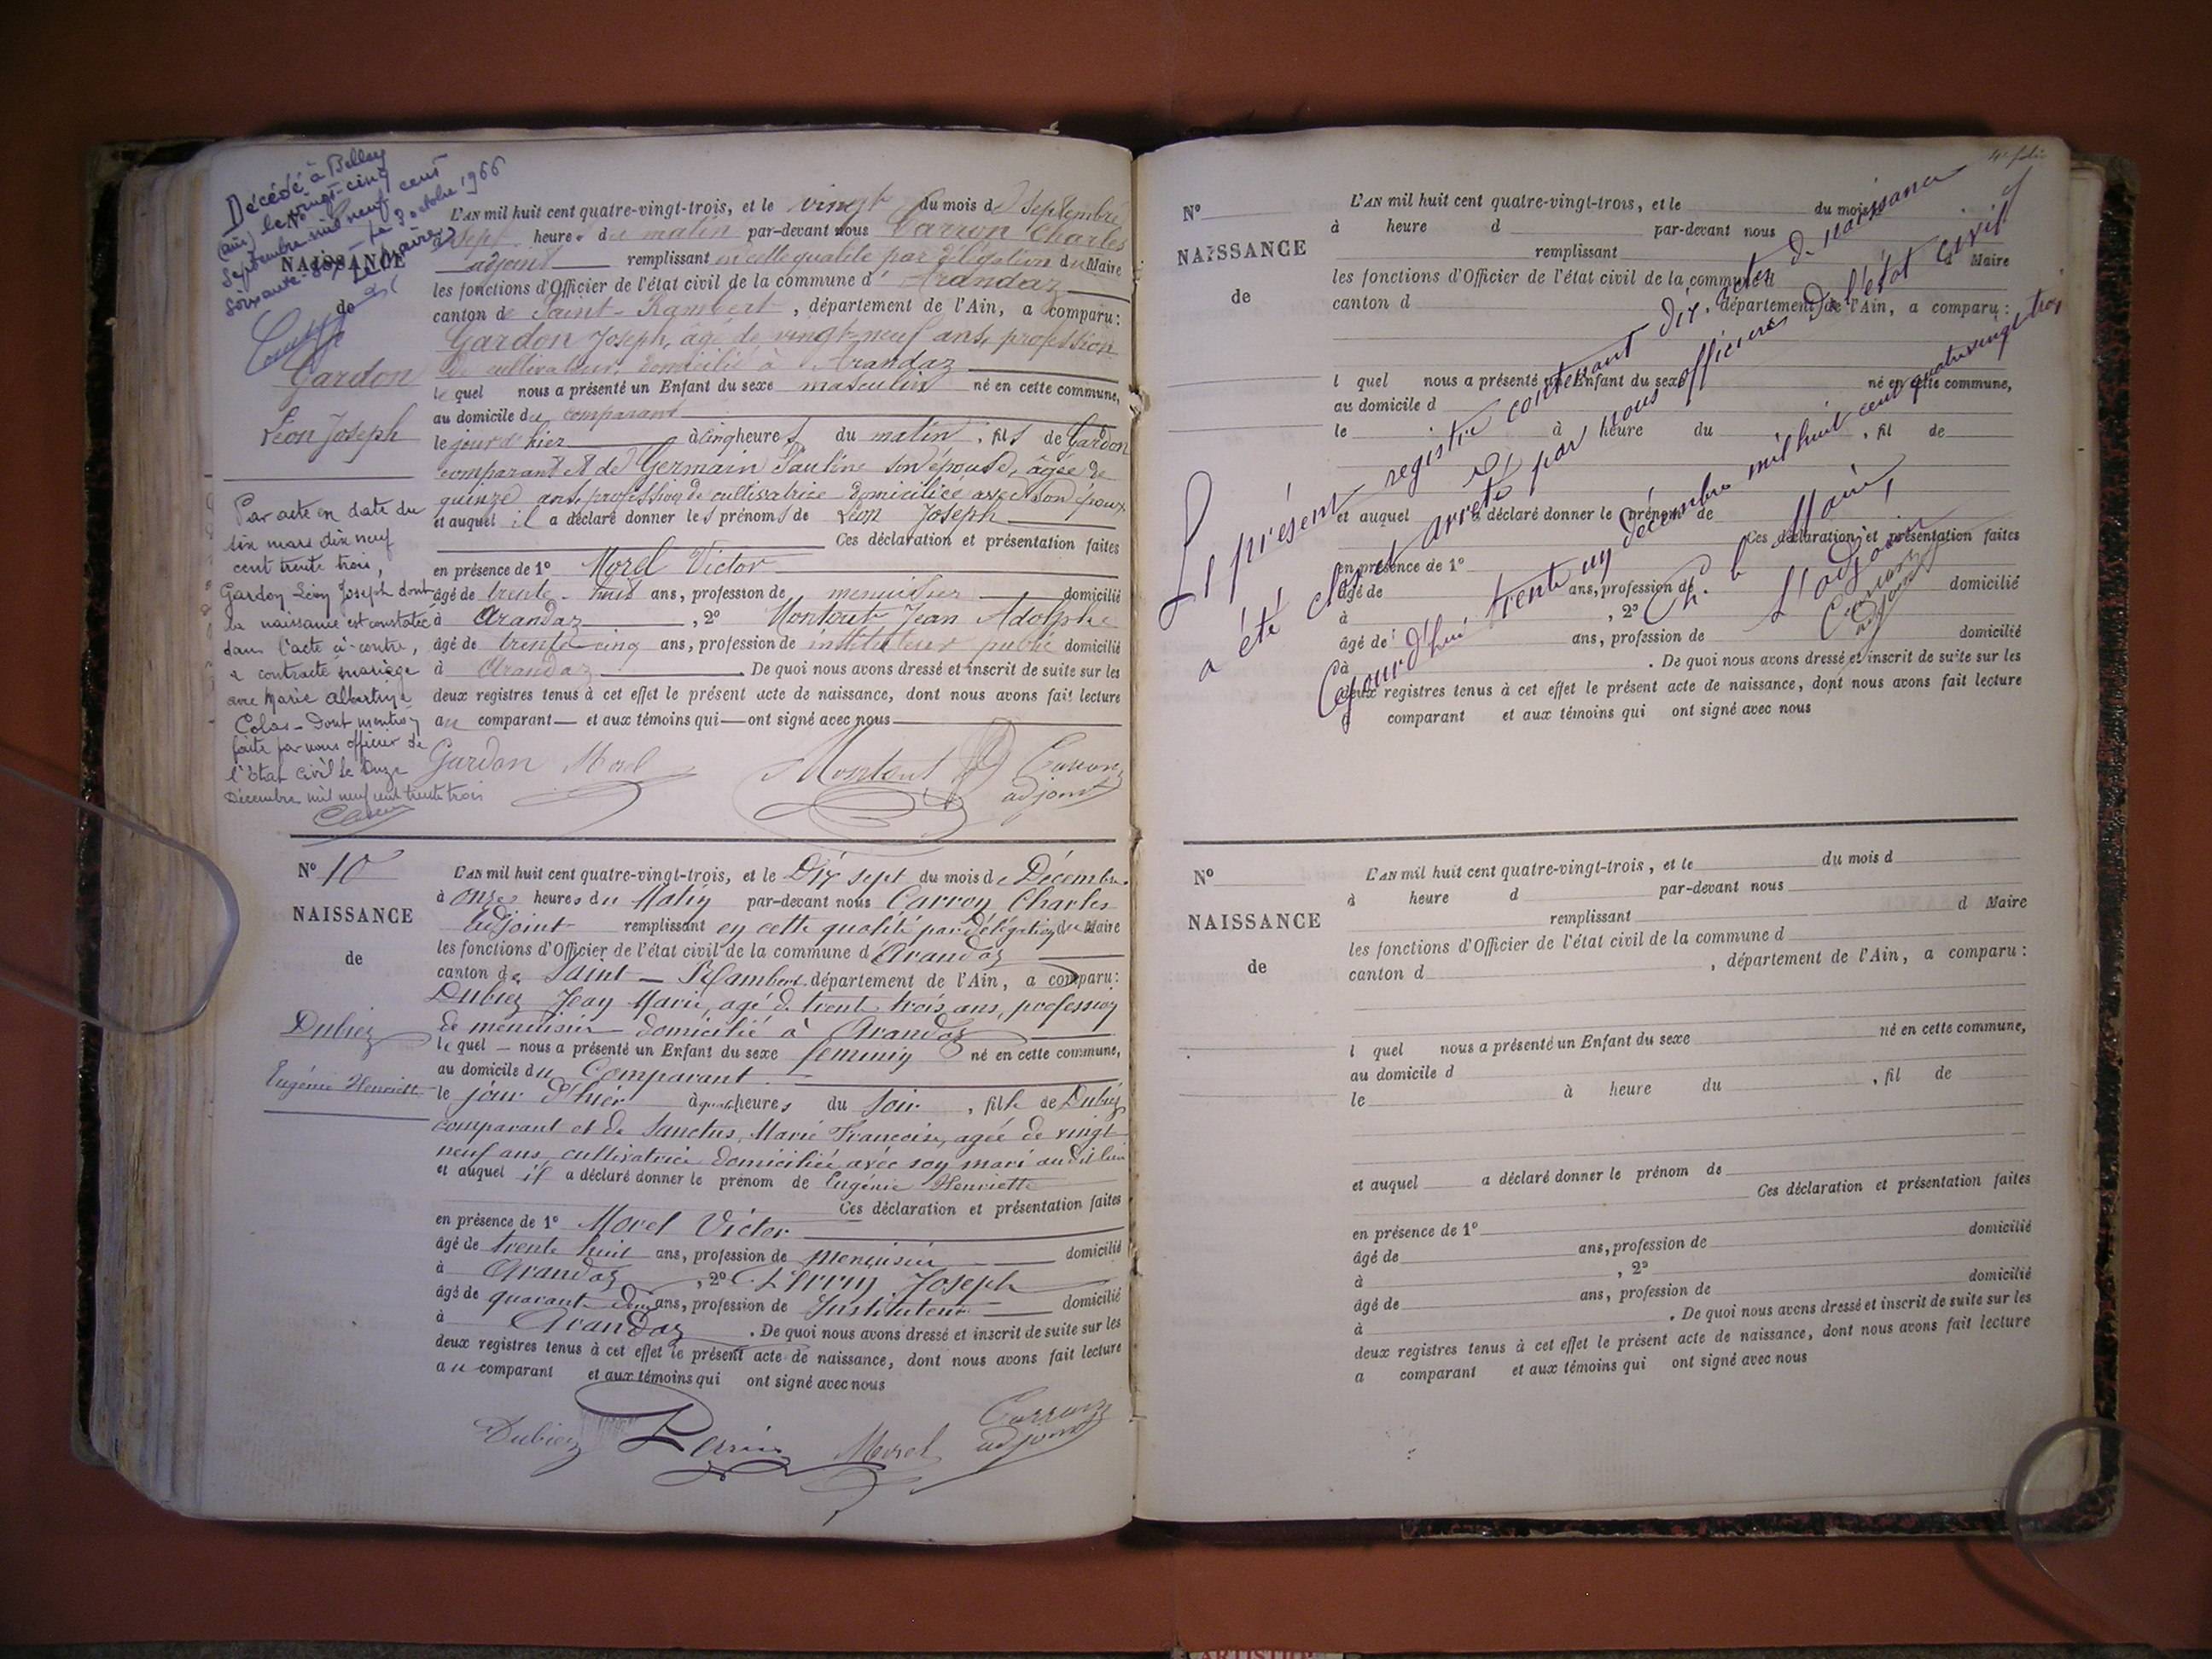 Décédé à Belley
(Ain) le vingt-cinq
Septembre mil neuf cent
soixante-six - Le 3 octobre 1966
Le Maire
NAISSANCE
de
Gardon
Léon Joseph
Par acte en date du
six mars dix neuf
cent trente trois,
Gardon Léon Joseph dont
la naissance est constatée
dans l'acte ci-contre,
a contracté mariage
avec Marie Albertine
Colas - Dont mention
faite par nous officier de
l'état civil le onze
Décembre mil neuf cent trente trois
L'AN mil huit cent quatre-vingt-trois, et le vingt du mois de Septembre
à sept heures du matin par-devant nous Carron Charles
adjoint remplissant en cette qualité par délégation du Maire
les fonctions d'Officier de l'état civil de la commune d'Arandaz
canton de Saint-Rambert, département de l'Ain, a comparu:
Gardon Joseph, âgé de vingt-neuf ans, profession
de cultivateur, domicilié à Arandaz
lequel nous a présenté un Enfant du sexe masculin né en cette commune,
au domicile du comparant
le jour d'hier à cinq heures du matin, fils de Gardon
comparant et de Germain Pauline son épouse, âgée de
quinze ans, profession de cultivatrice domiciliée avec son époux
et auquel il a déclaré donner les prénoms de Léon Joseph
Ces déclaration et présentation faites
en présence de 1° Morel Victor
âgé de trente-huit ans, profession de menuisier domicilié
à Arandaz, 2° Montout Jean Adolphe
âgé de trente-cinq ans, profession de instituteur public domicilié
à Arandaz. De quoi nous avons dressé et inscrit de suite sur les
deux registres tenus à cet effet le présent acte de naissance, dont nous avons fait lecture
au comparant et aux témoins qui ont signé avec nous
Gardon Morel Montout Carron
adjoint
N° 10
NAISSANCE
de
Dubiez
Eugénie Henriette
L'AN mil huit cent quatre-vingt-trois, et le Dix sept du mois de Décembre
à onze heures du Matin par-devant nous Carron Charles
adjoint remplissant en cette qualité par délégation du Maire
les fonctions d'Officier de l'état civil de la commune d'Arandaz
canton de Saint-Rambert département de l'Ain, a comparu:
Dubiez Jean Marie, agé de trente trois ans, profession
de menuisier domicilié à Arandaz
lequel nous a présenté un Enfant du sexe féminin né en cette commune,
au domicile du Comparant
le jour d'hier à quatre heures du soir, fille de Dubiez
comparant et de Sanctus, Marie Françoise, agée de vingt
neuf ans, cultivatrice domiciliée avec son mari audit lieu
et auquel il a déclaré donner le prénom de Eugénie Henriette
Ces déclaration et présentation faites
en présence de 1° Morel Victor
âgé de trente huit ans, profession de menuisier domicilié
à Arandaz, 2° Perrin Joseph
âgé de quarante deux ans, profession de Instituteur domicilié
à Arandaz. De quoi nous avons dressé et inscrit de suite sur les
deux registres tenus à cet effet le présent acte de naissance, dont nous avons fait lecture
au comparant et aux témoins qui ont signé avec nous
Dubiez Perrin Morel Carron
adjoint
N°
NAISSANCE
de
L'AN mil huit cent quatre-vingt-trois, et le du mois
à heure d par-devant nous
remplissant d Maire
les fonctions d'Officier de l'état civil de la commune d
canton d département de l'Ain, a comparu:
l quel nous a présenté un Enfant du sexe né en cette commune,
au domicile d
le à heure du , fil de
et auquel a déclaré donner le prénom de
Ces déclaration et présentation faites
en présence de 1°
âgé de ans, profession de domicilié
à , 2°
âgé de ans, profession de domicilié
à . De quoi nous avons dressé et inscrit de suite sur les
deux registres tenus à cet effet le présent acte de naissance, dont nous avons fait lecture
a comparant et aux témoins qui ont signé avec nous
Le présent registre contenant dix actes de naissance
a été clos et arrêté par nous officier de l'état civil
Cejourd'hui trente un décembre mil huit cent quatre vingt trois
P. le Maire,
L'adjoint
Carron
adjoint
N°
NAISSANCE
de
L'AN mil huit cent quatre-vingt-trois, et le du mois d
à heure d par-devant nous
remplissant d Maire
les fonctions d'Officier de l'état civil de la commune d
canton d , département de l'Ain, a comparu:
l quel nous a présenté un Enfant du sexe né en cette commune,
au domicile d
le à heure du , fil de
et auquel a déclaré donner le prénom de
Ces déclaration et présentation faites
en présence de 1°
âgé de ans, profession de domicilié
à , 2°
âgé de ans, profession de domicilié
à . De quoi nous avons dressé et inscrit de suite sur les
deux registres tenus à cet effet le présent acte de naissance, dont nous avons fait lecture
a comparant et aux témoins qui ont signé avec nous